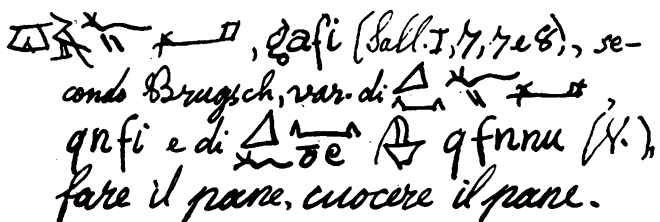 , gafi (Sall. I, 7, 7 e 8), se-
condo Brugsch, var. di
qnfi e di qfnnu (V.),
fare il pane, cuocere il pane.